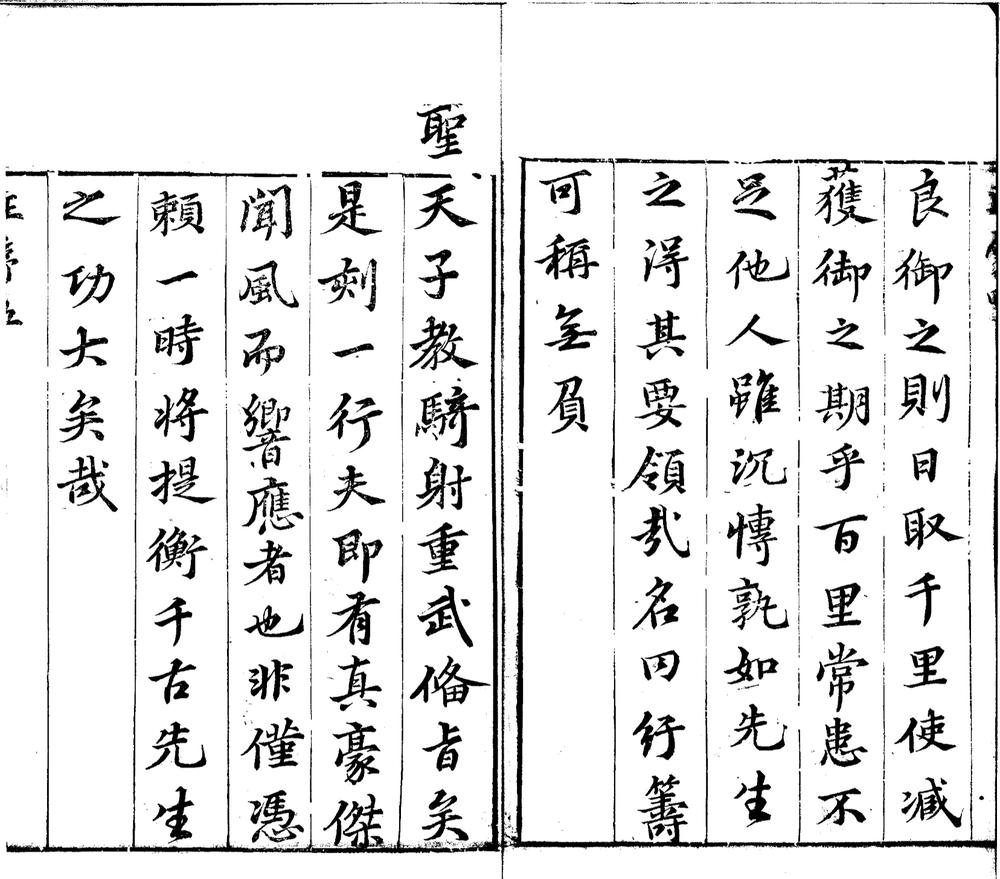 良御之則日取千里使減
獲御之期乎百里常患不
足他人雖沉慱孰如先生
之得其要領哉名曰行籌
可稱全員
聖
天子教騎射重武備旨矣
是刻一行夫即有真豪傑
聞風而響應者也非僅憑
頼一時將提衡千古先生
之功大矣哉